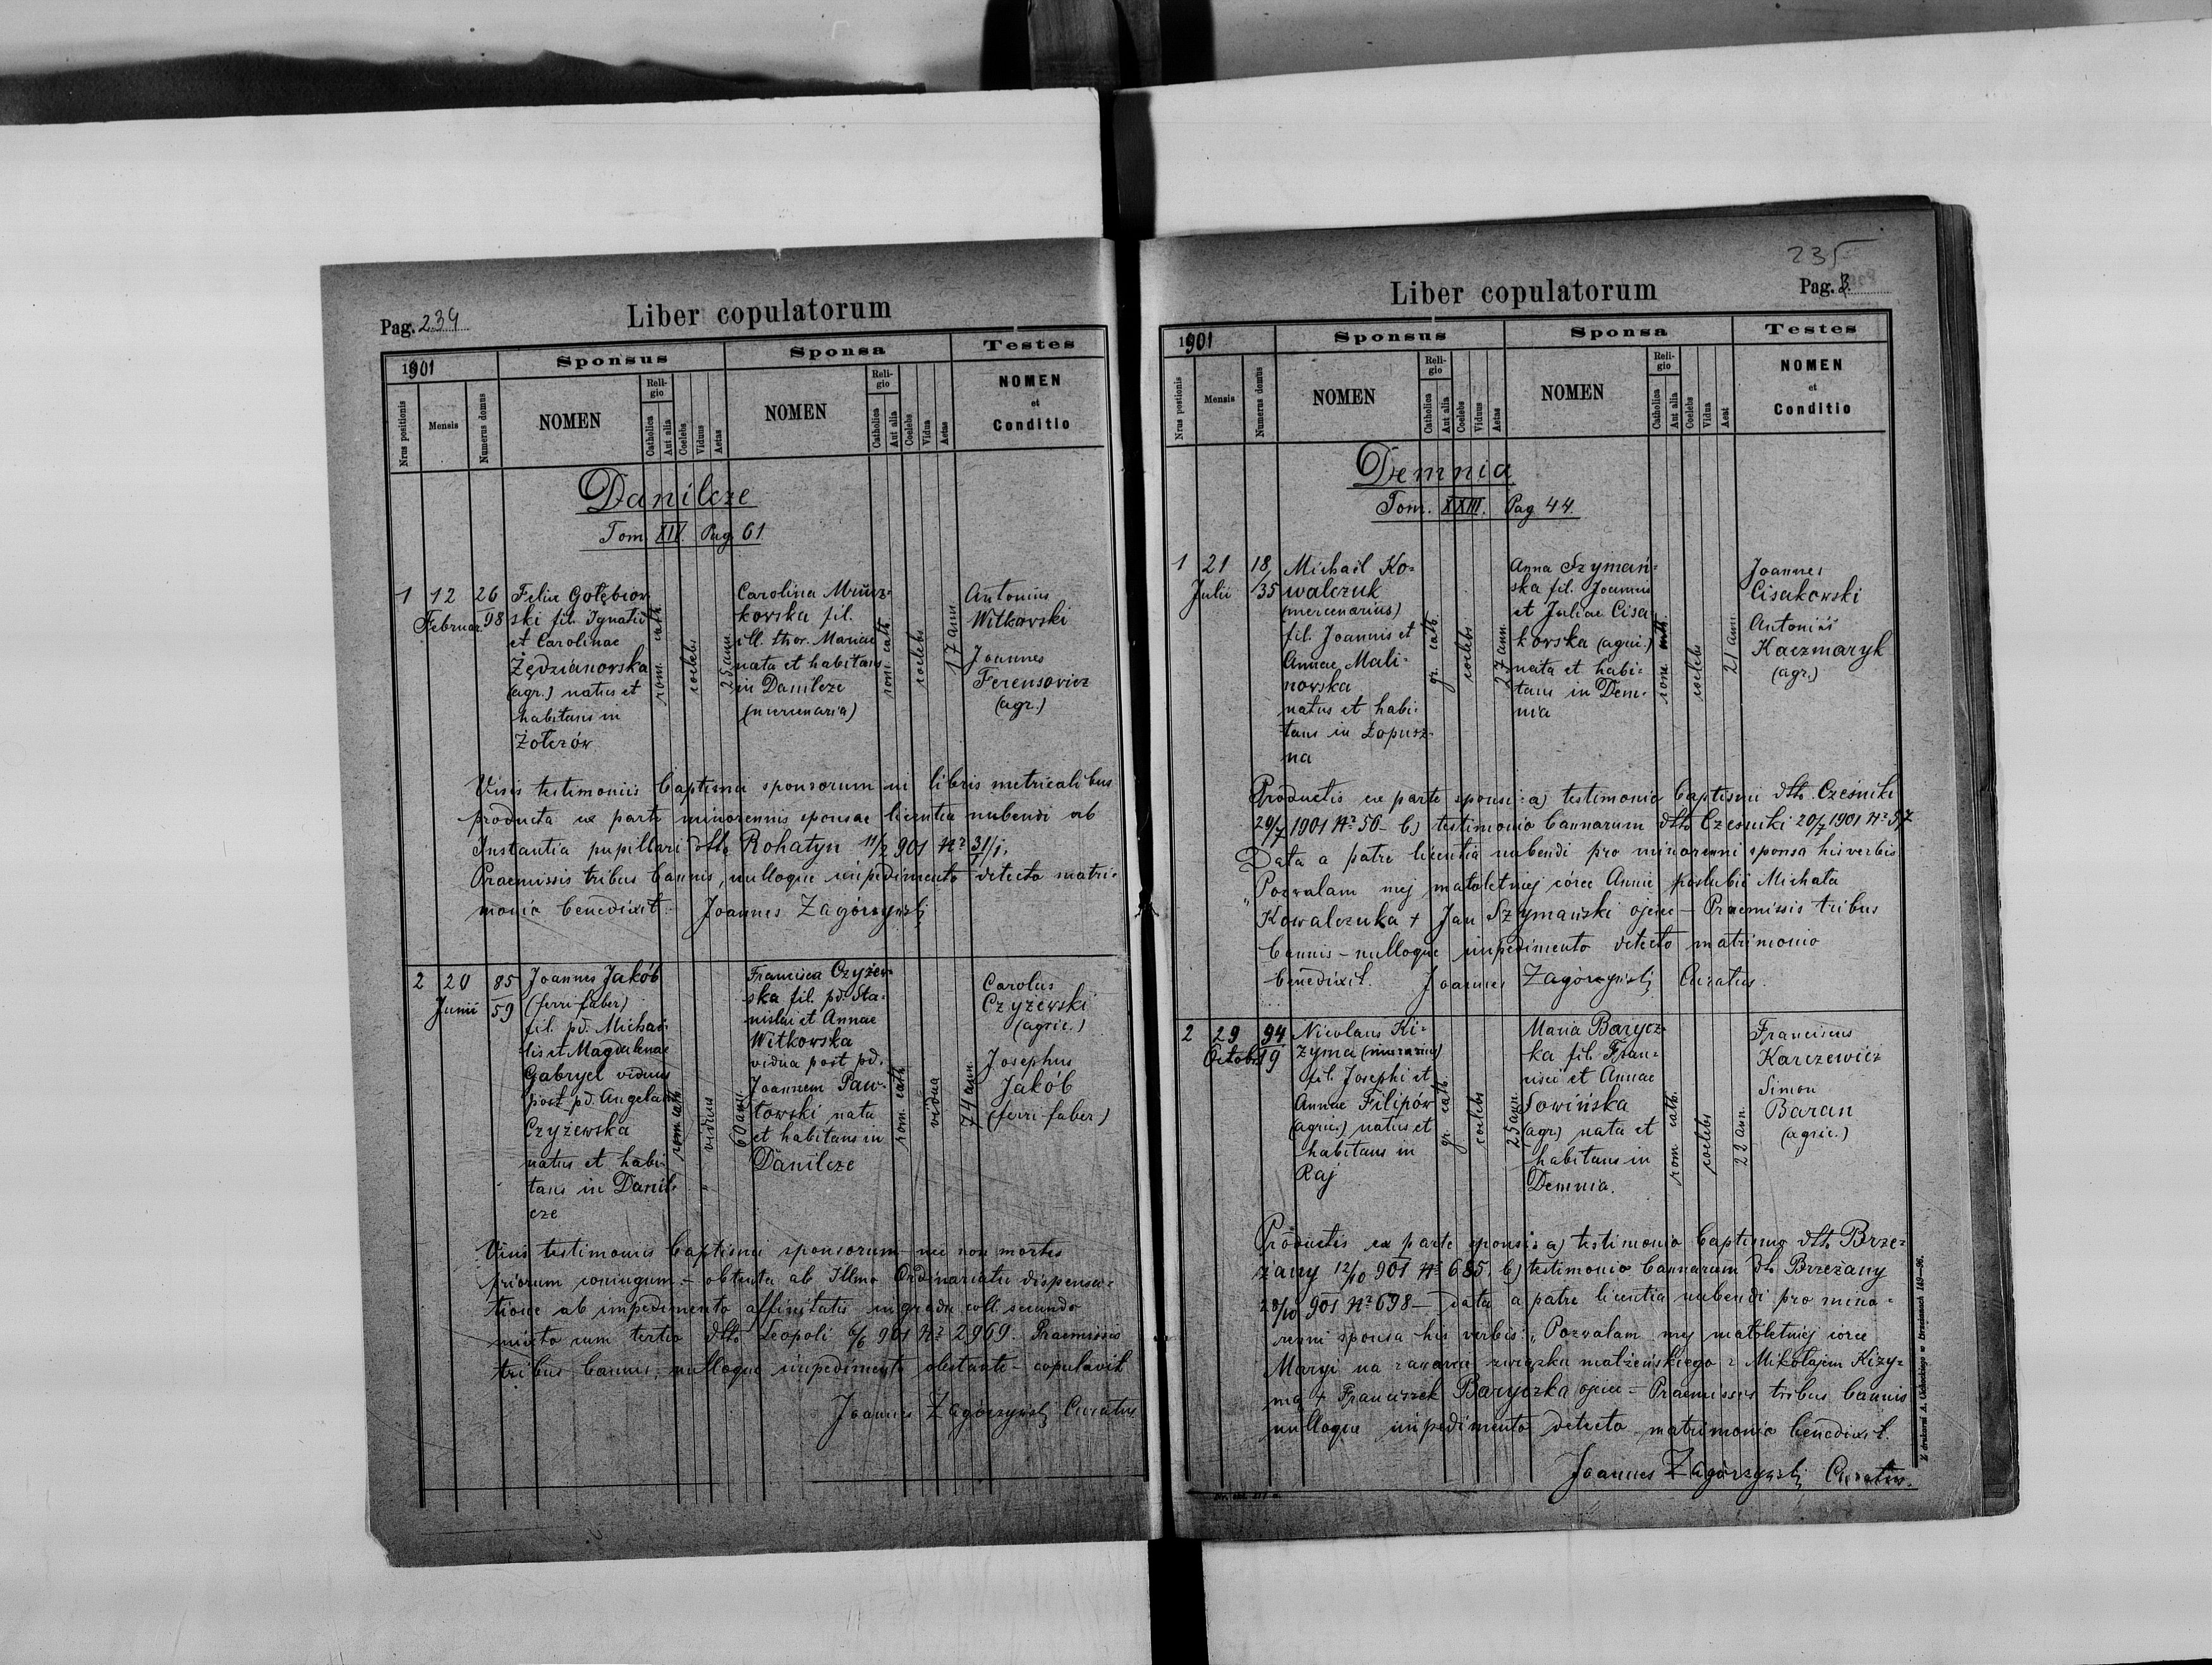 Pag. 234
Liber copulatorum
1901
Sponsus
Sponsa
Testes
Nrus postionis
Mensis
Numerus domus
NOMEN
Religio
Catholica
Aut alia
Coelebs
Viduus
Aetas
NOMEN
Religio
Catholica
Aut alia
Coelebs
Vidua
Aetas
NOMEN
et
Conditio
Danilcze
Tom. XIV. Pag. 61
1
12
Februar.
26
98
Felix Gołębiow
ski fil. Ignatii
et Carolinae
Żędzianowska
(agr.) natus et
habitans in
Żołczów
rom. cath
coelebs
25 ann
Carolina
kowska fil.
ill. thor. Mariae
nata et habitans
in Danilcze
(mercenaria)
rom. cath
coelebs
17 ann
Antonius
Witkowski
Joannes
Ferensowicz
(agr.)
Visis testimoniis baptismi sponsorum in libris metricalibus
producta ex parte minorennis sponsae licentia nubendi ab
Instantia pupillari dtto Rohatyn 11/2 901 No 31/1,
Praemissis tribus bannis, nulloque impedimento detecto matri-
monio benedixit. Joannes Zagórzyński
2
20
Junii
85
59
Joannes Jakób
(ferri-faber)
fil. pd. Michaë-
lis et Magdalenae
Gabryel viduus
post pd. Angelam
Czyżewska
natus et habi-
tans in Danil-
cze
rom cath
viduus
60 ann
Francisca Czyżew-
ska fil. pd. Sta-
nislai et Annae
Witkowska
vidua post pd.
Joannem Paw-
łowski nata
et habitans in
Danilcze
rom. cath
vidua
74 ann
Carolus
Czyżewski
(agric.)
Josephus
Jakób
(ferri-faber)
Visis testimoniis baptismi sponsorum nec non mortis
priorum coniugum - obtenta ab Illmo Ordinariatu dispensa-
tione ab impedimento affinitatis in gradu coll. secundo
mixto cum tertio dtto Leopoli 6/6 901 No 2969. Praemissis
tribus bannis, nulloque impedimento obstante - copulavit
Joannes Zagórzyński Curatus
235
Liber copulatorum
Pag. 3
1901
Sponsus
Sponsa
Testes
Nrus postionis
Mensis
Numerus domus
NOMEN
Religio
Catholica
Aut alia
Coelebs
Viduus
Aetas
NOMEN
Religio
Catholica
Aut alia
Coelebs
Vidua
Aeat
NOMEN
et
Conditio
Demnia
Tom. XXIII. Pag 44.
1
21
Julii
18/
35
Michaël Ko-
walczuk
(mercenarius)
fil. Joannis et
Annae Mali-
nowska
natus et habi-
tans in Łopusz-
na
gr. cath.
coelebs
27 ann.
Anna Szymań-
ska fil. Joannis
et Juliae Cisa
kowska (agric.)
nata et habi-
tans in Dem-
nia
rom cath
coelebs
21 ann.
Joannes
Cisakowski
Antonius
Kaczmaryk
(agr.)
Productis ex parte sponsi: a) testimonio baptismi dtto. Cześniki
29/7 1901 No 56 - b) testimonio bannarum dtto Cześniki 20/7 1901 No 57
Data a patre licentia nubendi pro minorenni sponsa his verbis
"Pozwalam mej małoletniej córce Annie poślubić Michała
Kowalczuka + Jan Szymański ojciec - Praemissis tribus
bannis - nulloque impedimento detecto matrimonio
benedixit. Joannes Zagórzyński Curatus.
2
29
Octobr.
94
19
Nicolaus Ki-
zyma (murarius)
fil. Josephi et
Annae Filipów
(agric.) natus et
habitans in
Raj
gr. cath.
coelebs
25 ann.
Maria Barycz-
ka fil. Fran-
cisci et Annae
Sowińska
(agr) nata et
habitans in
Demnia.
rom cath.
coelebs
22 ann.
Franciscus
Karczewicz
Simon
Baran
(agric.)
Productis ex parte sponsi: a) testimonio baptismo dtto. Brze-
żany 12/10 901 No 685. b) testimonio bannarum dto Brzeżany
28/10 901 No 698 - data a patre licentia nubendi pro mino-
renni sponsa his verbis: "Pozwalam mej małoletniej córce
Maryi na zawarcie związku małżeńskiego z Mikołajem Kizy-
mą + Franciszek Baryczka ojciec - Praemissis tribus bannis
nulloque impedimento detecto matrimonio benedixit.
Joannes Zagórzyński Curatus.